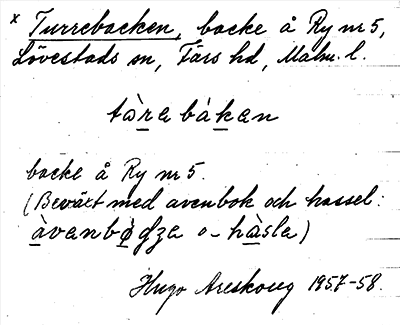 x Turrebacken, backe å Ry nr 5,
Lövestads sn, Färs hd, Malm. l.
tàra bákan
backe å Ry nr 5.
(Beväxt med avenbok och hassel:
àvanbøgza o- hàsla)
Hugo Areskoug 1957-58.